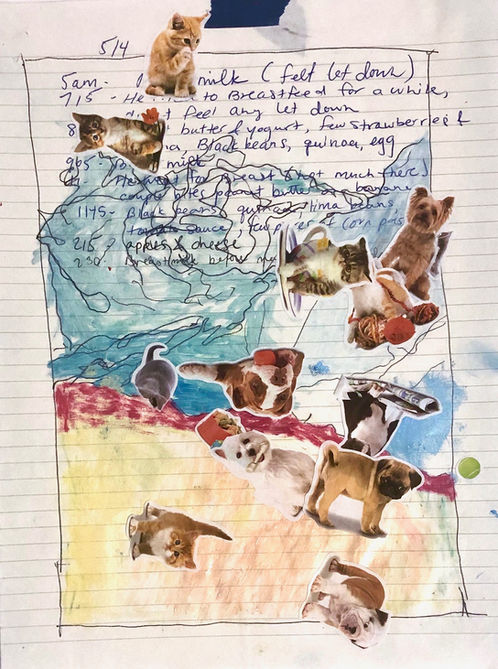 5/4
5am - milk (felt let down)
715 - to Breastfeed for a while,
feel any let down
8 butter & yogurt, few strawberries &
Black beans, quinoa, egg
milk
for breast (not much there)
couple bites peanut butter banana
1145 - Black beans, quinoa, lima beans
tomato sauce, few of corn
215 - apples & cheese
230 - Breastmilk before